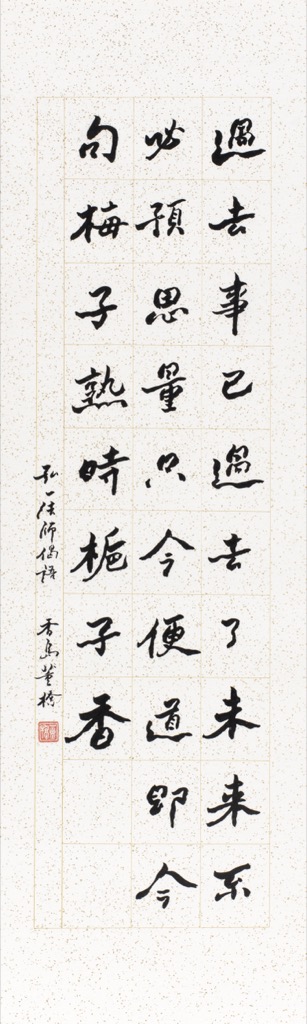 過去事已過去了未来不
必預思量只今便道即今
句梅子熟時栀子香
弘一法師偈語 香島董橋